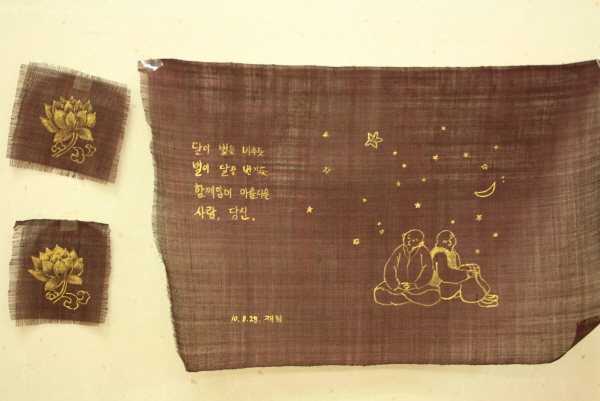 달이 별을 비추듯
별이 달을 반기듯
함께임이 아름다운
사람, 당신.
10.8.29. 재희